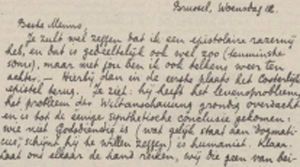 Brussel, Woensdag 12.
Beste Menno,
Je zult wel zeggen dat ik een epistolaire razernij
heb, en dat is gedeeltelijk ook wel zoo (tenminste
soms), maar met jou ben ik ook telkens weer ten
achter. — Hierbij dan in de eerste plaats het Costerlijk
epistel terug. Je ziet: hij heeft het levensprobleem,
het probleem der Weltanschauung grondig overdacht
en is tot de eenige synthetische conclusie gekomen:
wie niet Godsdienstig is (wat gelyk staat aan dogmati-
cus, schijnt hij te willen zeggen) is humanist. Klaar.
Laat ons elkaar de hand reiken, wij die geen van